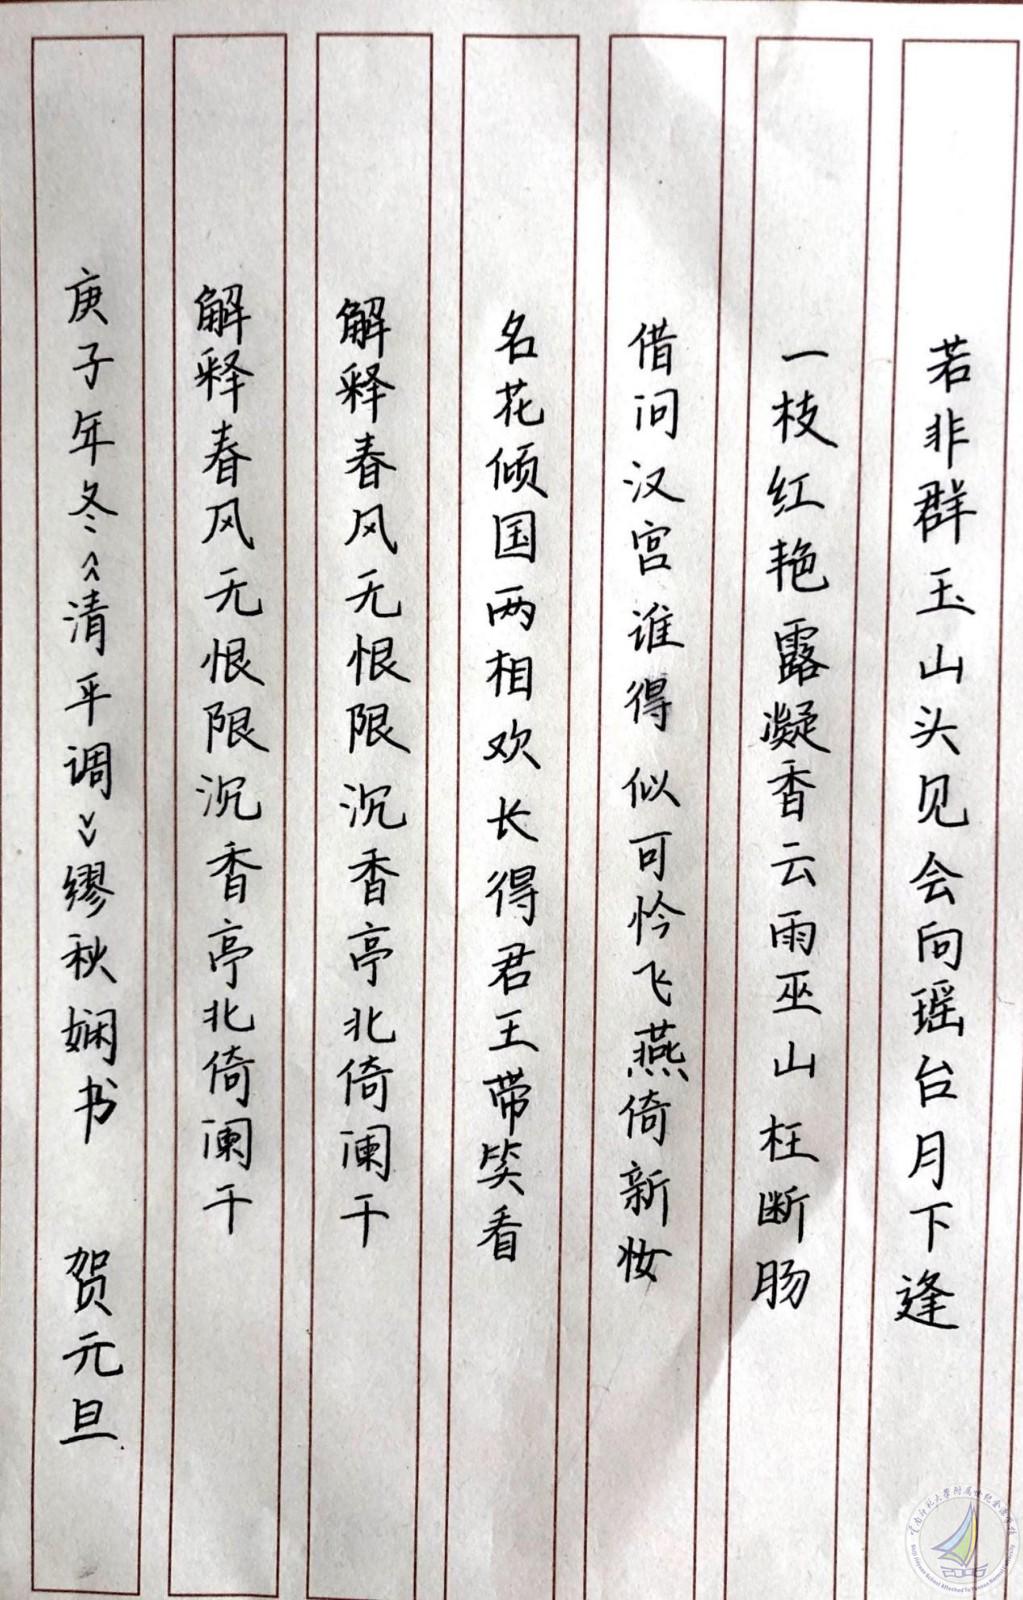 若非群玉山头见会向瑶台月下逢
一枝红艳露凝香云雨巫山枉断肠
借问汉宫谁得似可怜飞燕倚新妆
名花倾国两相欢长得君王带笑看
解释春风无恨限沉香亭北倚阑干
解释春风无恨限沉香亭北倚阑干
庚子年冬《清平调》缪秋娴书 贺元旦